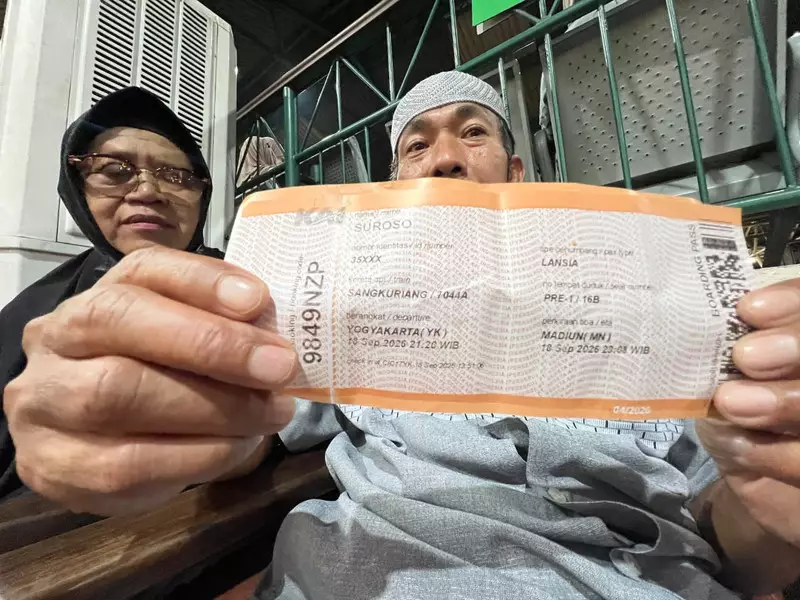 KAI
nama / name
SUROSO
nomor identitas / id number
35XXX
kereta api / train
SANGKURIANG / 1044A
berangkat / departure
YOGYAKARTA( YK )
18 Sep 2026 21:20 WIB
9849NZP
tipe penumpang / pax type
LANSIA
no tempat duduk / seat number
PRE-1 / 16B
perkiraan tiba / eta
MADIUN( MN )
18 Sep 2026 23:08 WIB
BOARDING PASS
04/2026